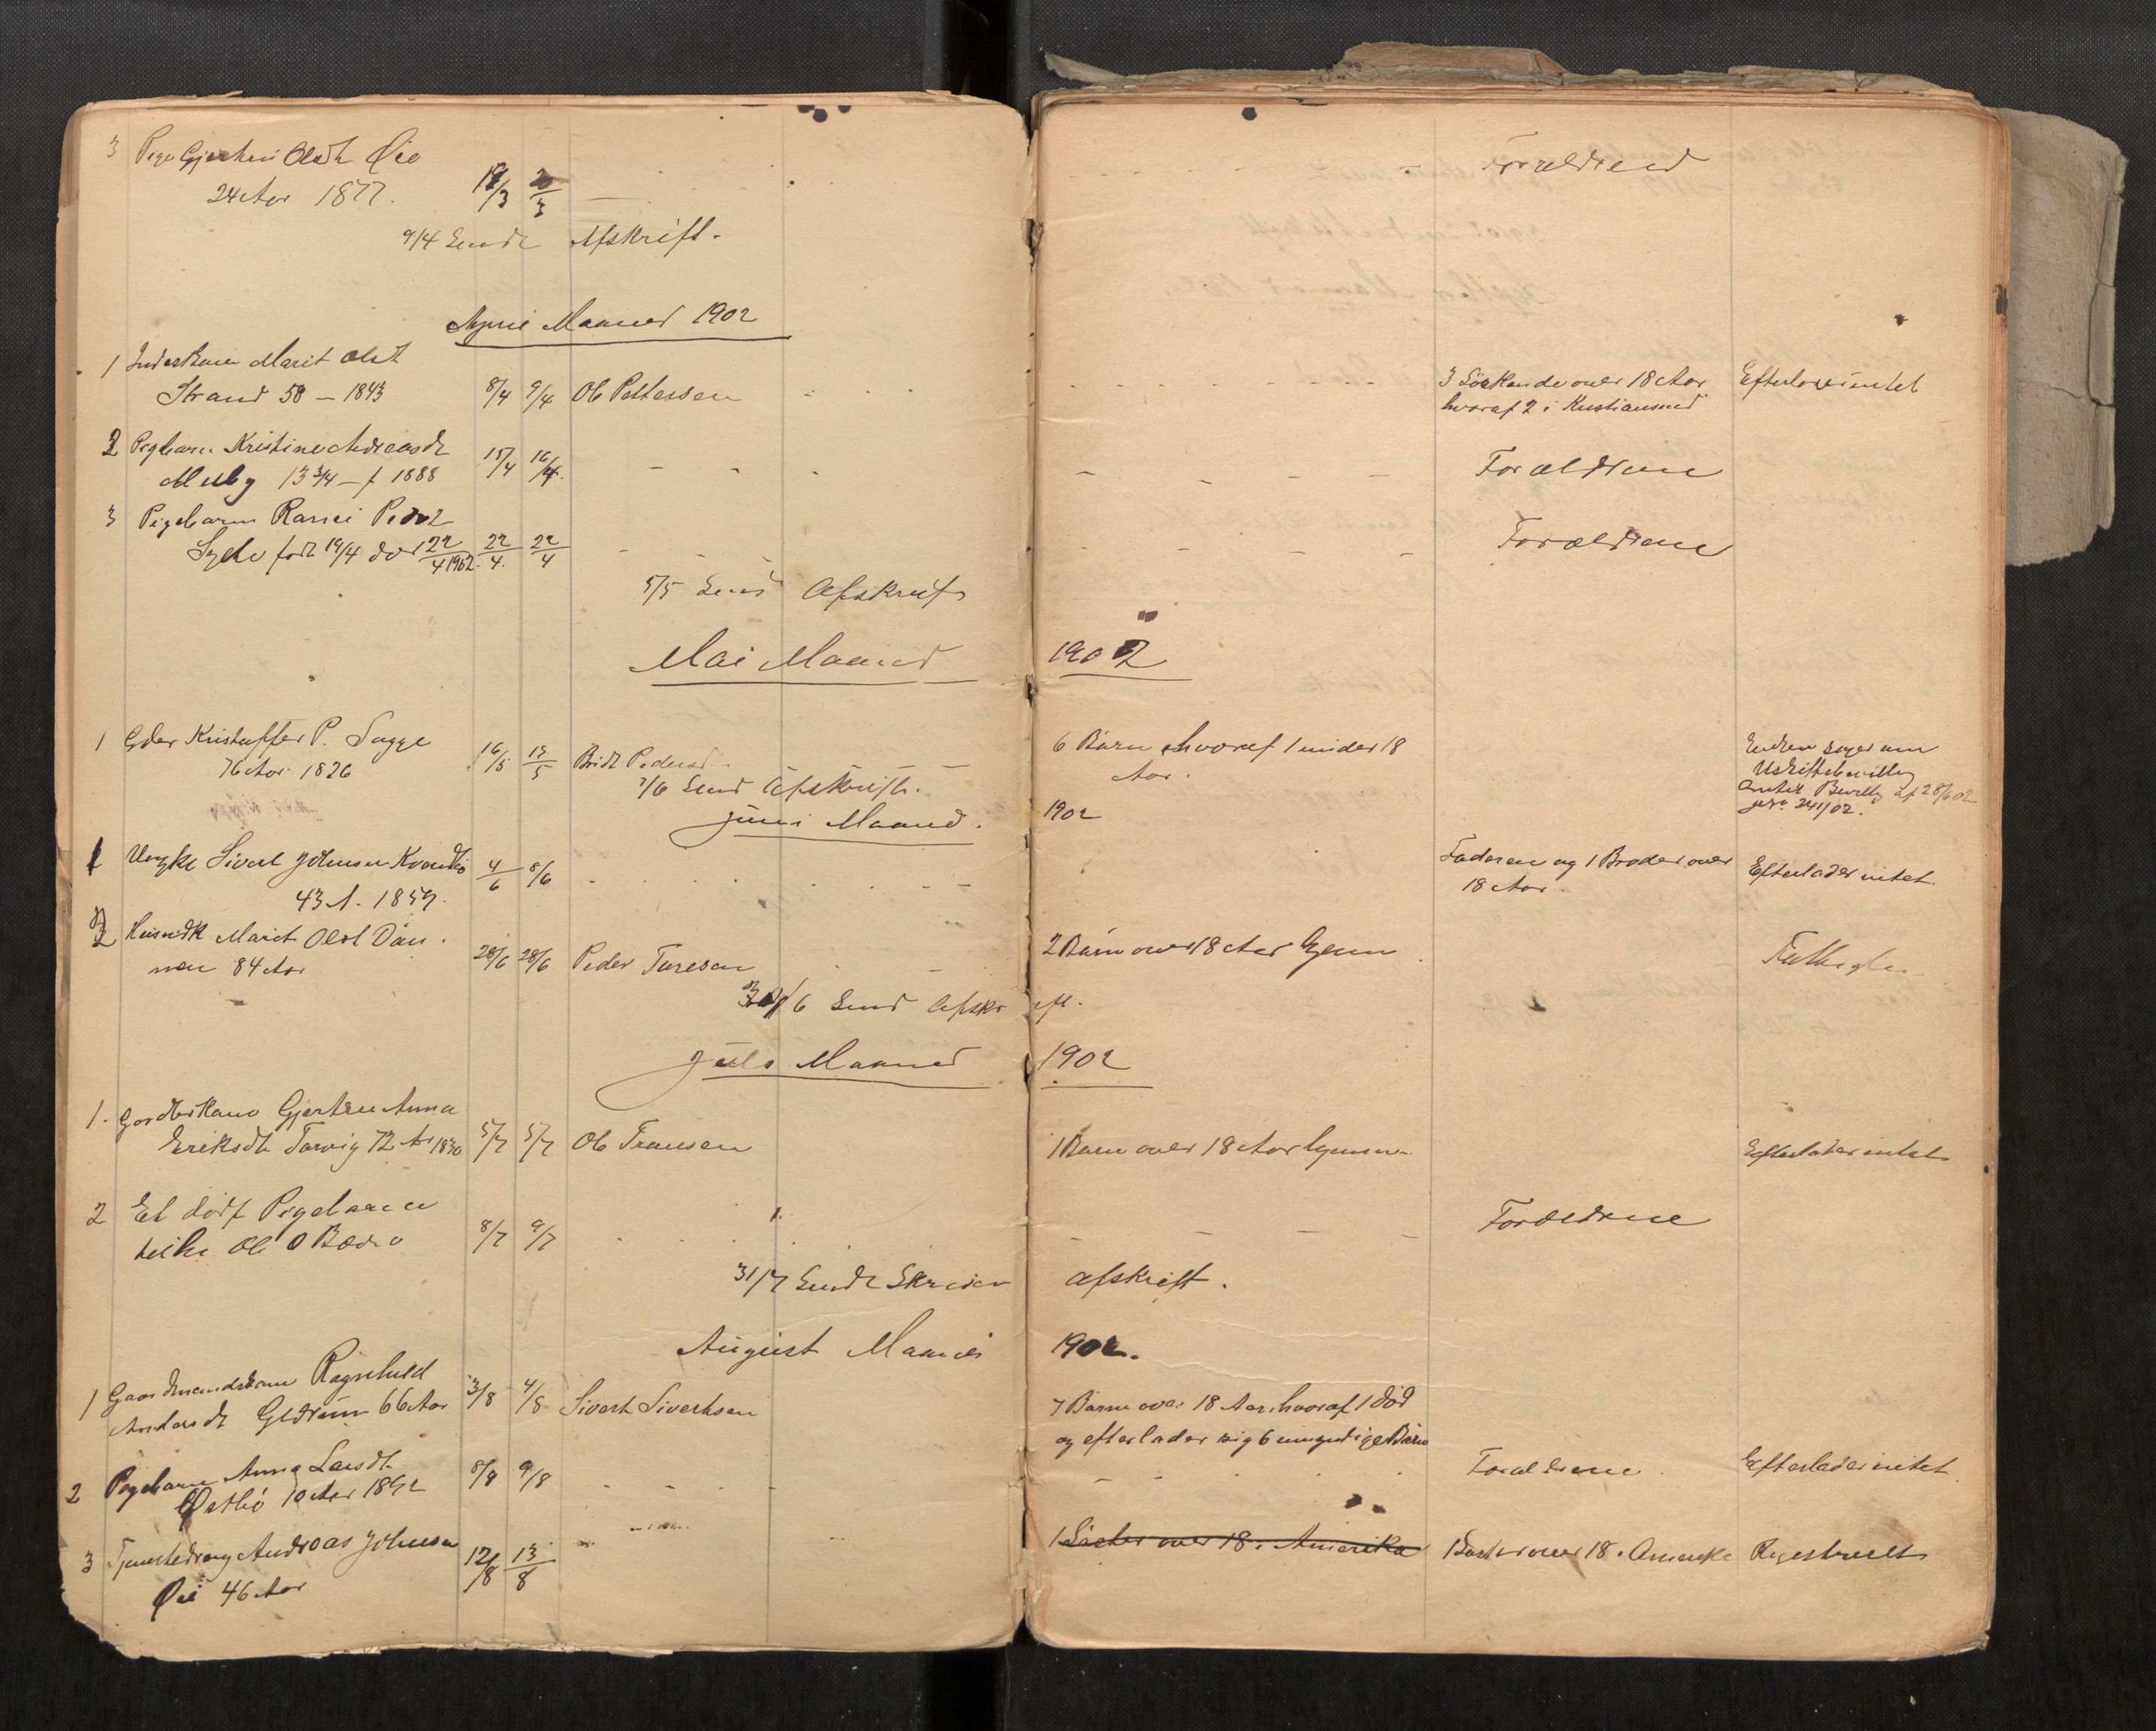 3 Pige Gjertrui Olsdt Øie Forældrene
24 Aar 1877. 19/3 20/3
9/4 Sendt Afskrift.
April Maaned 1902
1 Inderstkone Marit Olsdt
Strand 58 – 1843 8/4 9/4 Ole Pettersen 3 Søskende over 18 Aar Efterlod intet
hvoraf 2 i Kristiansund
2 Pigebarn Kristine Andreasdt
Melby 13 3/4 – f 1888 15/4 16/4. Forældrene
3 Pigebarn Ranei Pedersdt
født 19/4 død 22/4 1902. 22/4. 22/4 Forældrene
5/5 Send Afskrift
Mai Maaned 1902
1 Kristoffer P. Sagge 6 Børn hvoraf 1 under 18 Enken søger om
76 Aar 1826 16/5 Brit Pedersd Aar. Uskiftebevilling
7/6 Send Afskrift. Bevilling af 28/6 02
Juni Maaned. 1902 241/02.
1 Ungkl Sivert Johnsen 4/6 8/6 Faderen og 1 Broder over Efterlader intet.
43 A. 1859. 18 Aar.
2 Marit Olsd
84 Aar 28/6 28/6 Peder Turesen 2 Børn over 18 Aar
/6 Send Afskrift.
Juli Maaned 1902
1. Gjertru Anna
Eriksdt Tørvig 72 Aar 1830 5/7 5/7 Ole Fransen 1 Barn over 18 Aar hjemme. Efterlader intet
2 Et dødf Pigebarn
Ole O Bødro 8/7 9/7 Forældrene
31/7 Sendt Skriver Afskrift.
August Maaned 1902.
1 Gaardmandskone Ragnhild
Andersdt 66 Aar 3/8 4/8 Sivert Sivertsen 7 Børn over 18 Aar. hvoraf 1 død
og efterlader sig 6 umyndige Børn
2 Pigebarn Anna Larsdt 8/8 9/8 Forældrene. Efterlader intet.
Østbø 10 Aar 1892
3 Tjenestedreng Andreas Johnsen 12/8 13/8 1 Søster over 18 i Amerika 1 Søster over 18 i Amerika Registrert
Øie 46 Aar